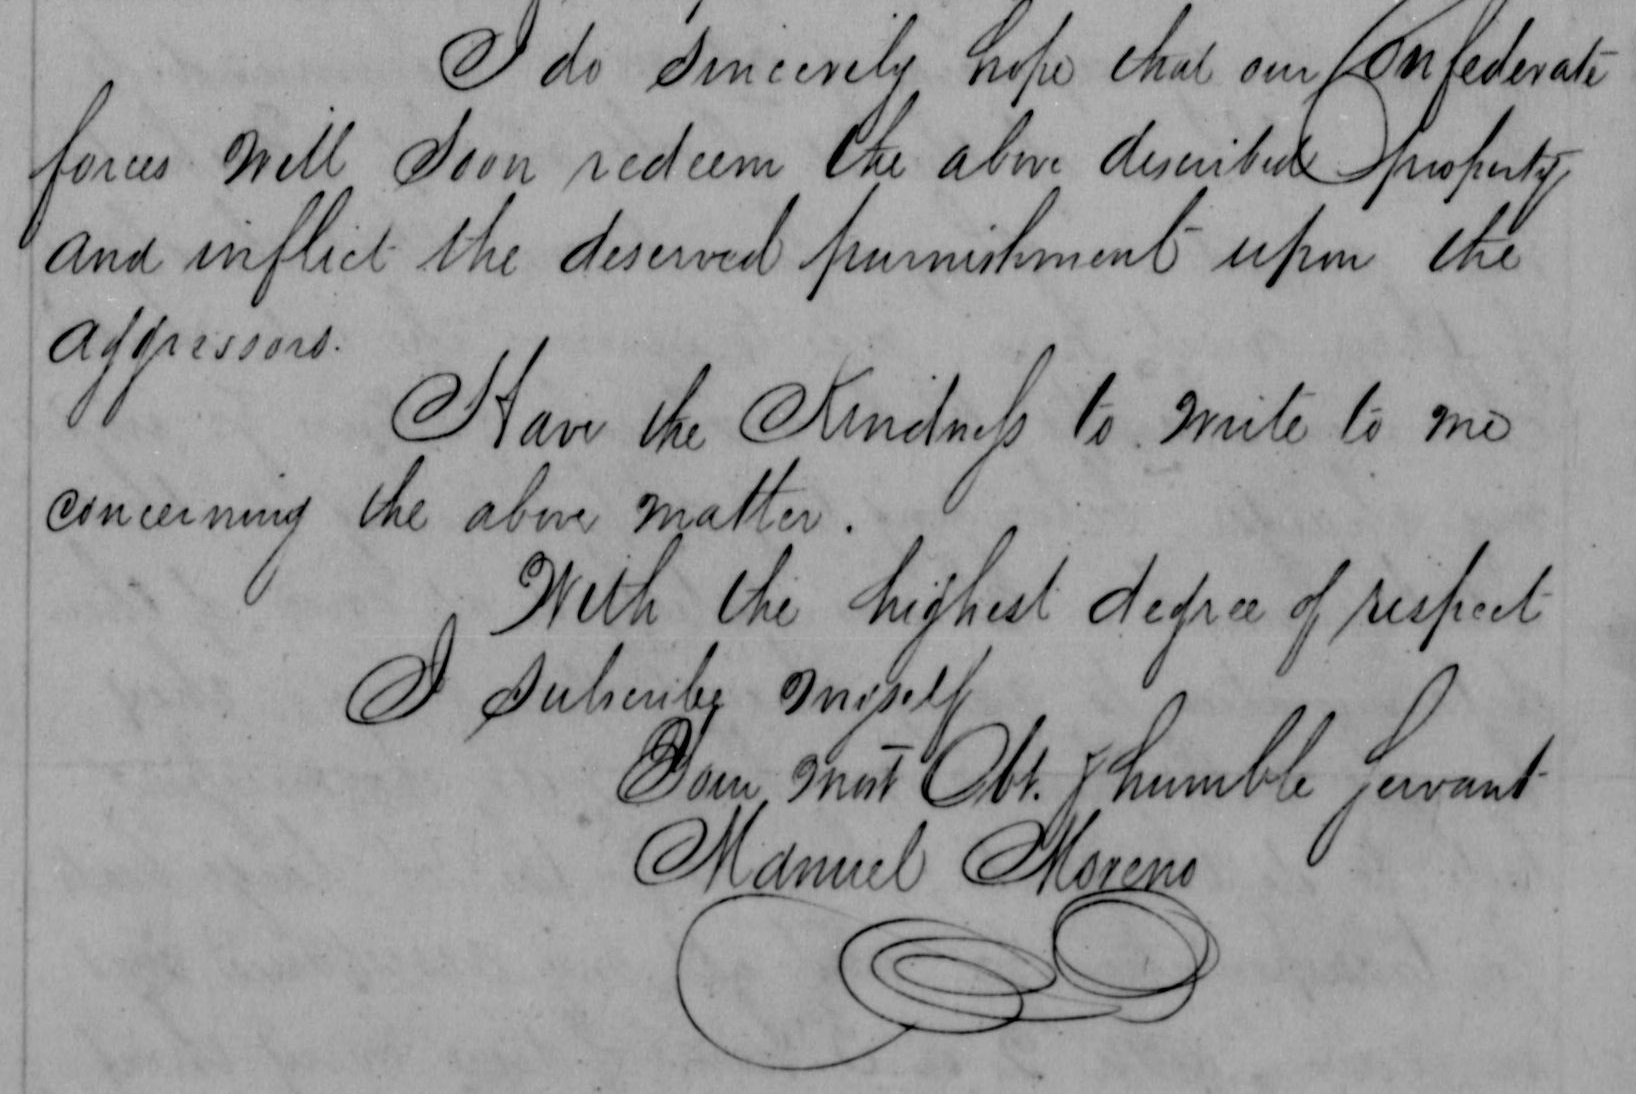 I do sincerely hope that our Confederate
forces will soon redeem the above described property
and inflict the deserved purnishment upon the
aggressors.
Have the Kindness to write to me
concerning the above matter.
With the highest degree of respect
I subscribe myself
Your most Obt. & humble servant
Manuel Moreno